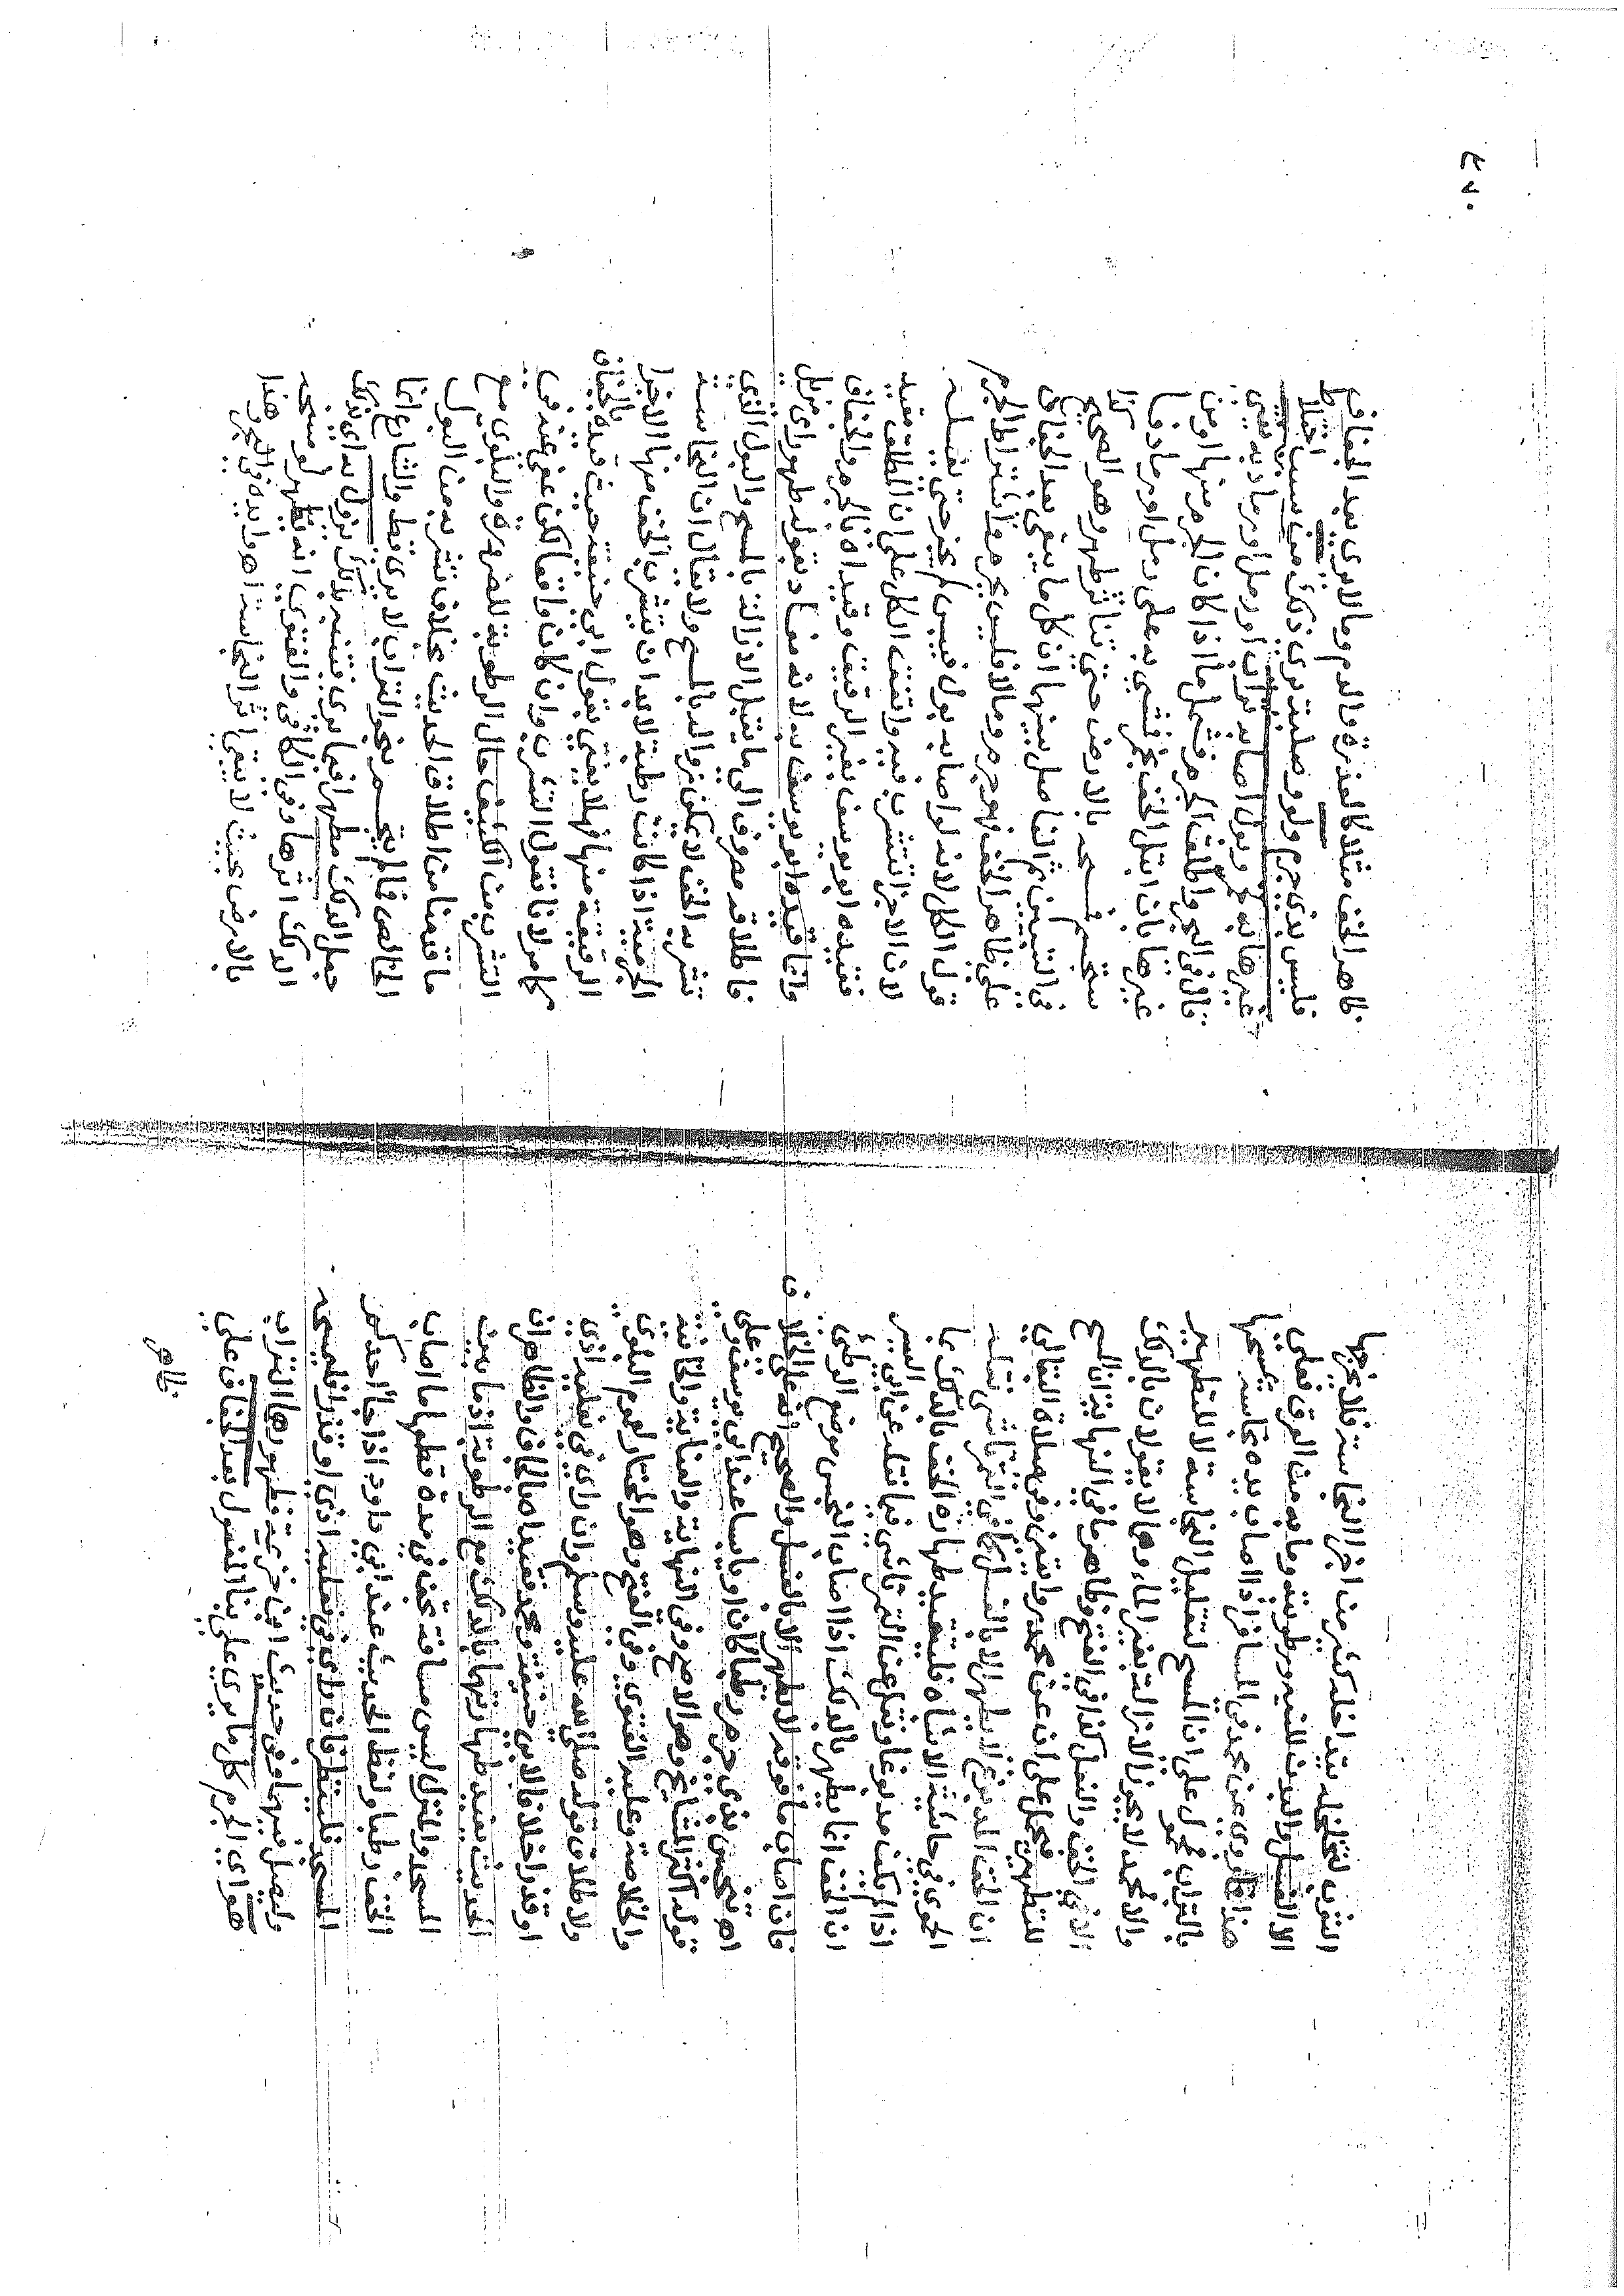 الثوب لتخلخله يتداخله كثير من اجزا النجاسة فلا يخرجها
الا الغسل والبدن للينه ورطوبته وما به من العرق فعلى
هذا فما روي عن محمد في المسافر اذا اصاب يده نجاسة يمسحها
بالتراب محمول على ان المسح لتقليل النجاسة لا للتطهير
والا فمحمد لا يجوز الازالة بغير الماء وهما لا يقولان بالدلك
الا في الخف والنعل كذا في الفتح وظاهر ما في النهاية ان المسح
للتطهير فيحمل على ان عن محمد روايتين وفي صلاة البقالي
ان الخف المدبوغ لا يطهر الا بالغسل كما في التمرتاشي نقله
الحموي في حاشية الاشباه فليقيد طهارة الخف بالدلك بما
اذا لم يكن مدبوغا ونقل عن التمرتاشي فيما نقله عن ابي اليسر
ان الخف انما يطهر بالدلك اذا اصاب النجس موضع الوطئ
فان اصاب ما فوقه لا يطهر الا بالغسل والصحيح انه على الخلاف
اه بنجس بذي جرم رطبا كان او يابسا عند ابي يوسف وعلى
قوله اكثر المشايخ وهو الاصح وفي النهاية والعناية والخانية
والخلاصة وعليه الفتوى وفي الفتح وهو المختار لعموم البلوى
ولاطلاق قوله صلى الله عليه وسلم وان راي في نعليه اذى
او قذرا خلافا لابي حنيفة ومحمد فقيدا بالجفاف والظاهر ان
الحديث يفيد طهارتها بالدلك مع الرطوبة اذ ما بين
المسجد والمنزل ليس مسافة تجف في مدة قطعها ما اصاب
الخف رطبا ولفظ الحديث عند ابي داود اذا جا احدكم
المسجد فلينظر فان راي في نعليه اذى او قذرا فليمسحه
وليصل فيهما وفي حديث ابن خزيمة فطهورهما التراب
هو اي الجرم كل ما يرى على بنا المفعول بعد الجفاف على
ظاهر
ظاهر الخف مثلا كالعذرة والدم وما لا يرى بعد الجفاف
فليس بذي جرم ولو وصلية يرى ذلك من سبب اختلاط
غيرها به كخمر وبول اصابه تراب او رمل او رماد به يفتى
قال في البحر واطلق الجرم فشمل ما اذا كان الجرم منها او من
غيرها بان ابتل الخف بخمر فمشى به على رمل او رماد فا
ستجمد فمسحه بالارض حتى تناثر طهر وهو الصحيح كذا
في التبيين ثم الفاصل بينهما ان كل ما يبقى بعد الجفاف
على ظاهر الخف فهو جرم وما لا فليس بجرم واشتراط الجرم
قول الكل لانه لو اصابه بول فيبس لم يجز حتى يغسله
لان الاجزا تتشرب فيه واتفق الكل على ان المطلق مقيد
فقيده ابو يوسف بغير الرقيق وقيداه بالجرم والجفاف
وانما قيده ابو يوسف به لانه مفاد بقوله طهور اي مزيل
فاطلاقه مصروف الى ما يقبل الازالة بالمسح والبول الذي
تشربه الخف لا يمكن زواله بالمسح ولا يقال ان النجاسة
الجرمية اذا كانت رطبة لا بد ان يتشرب الخف منها الاجزا
الرقيقة منها فهلا يفتى بقول ابي حنيفة حيث قيده بالجفاف
كما مر لانا نقول التشرب وان كان واقعا لكن عفي عنه من
التشرب من الكثيف حال الرطوبة للضرورة والبلوى مع
ما قدمنا من اطلاق الحديث بخلاف تشربه من البول
الخالص فلم يتجمد بنحو التراب لا يرى قط والشارع انما
جعل الدلك مطهرا فيما يرى فيتنبه بدلك يزول به اي بذلك
الدلك اثرها وفي الكافي والفتوى انه يطهر لو مسحه
بالارض بحيث لا يبقى اثر النجاسة اه وايده في البحر هذا